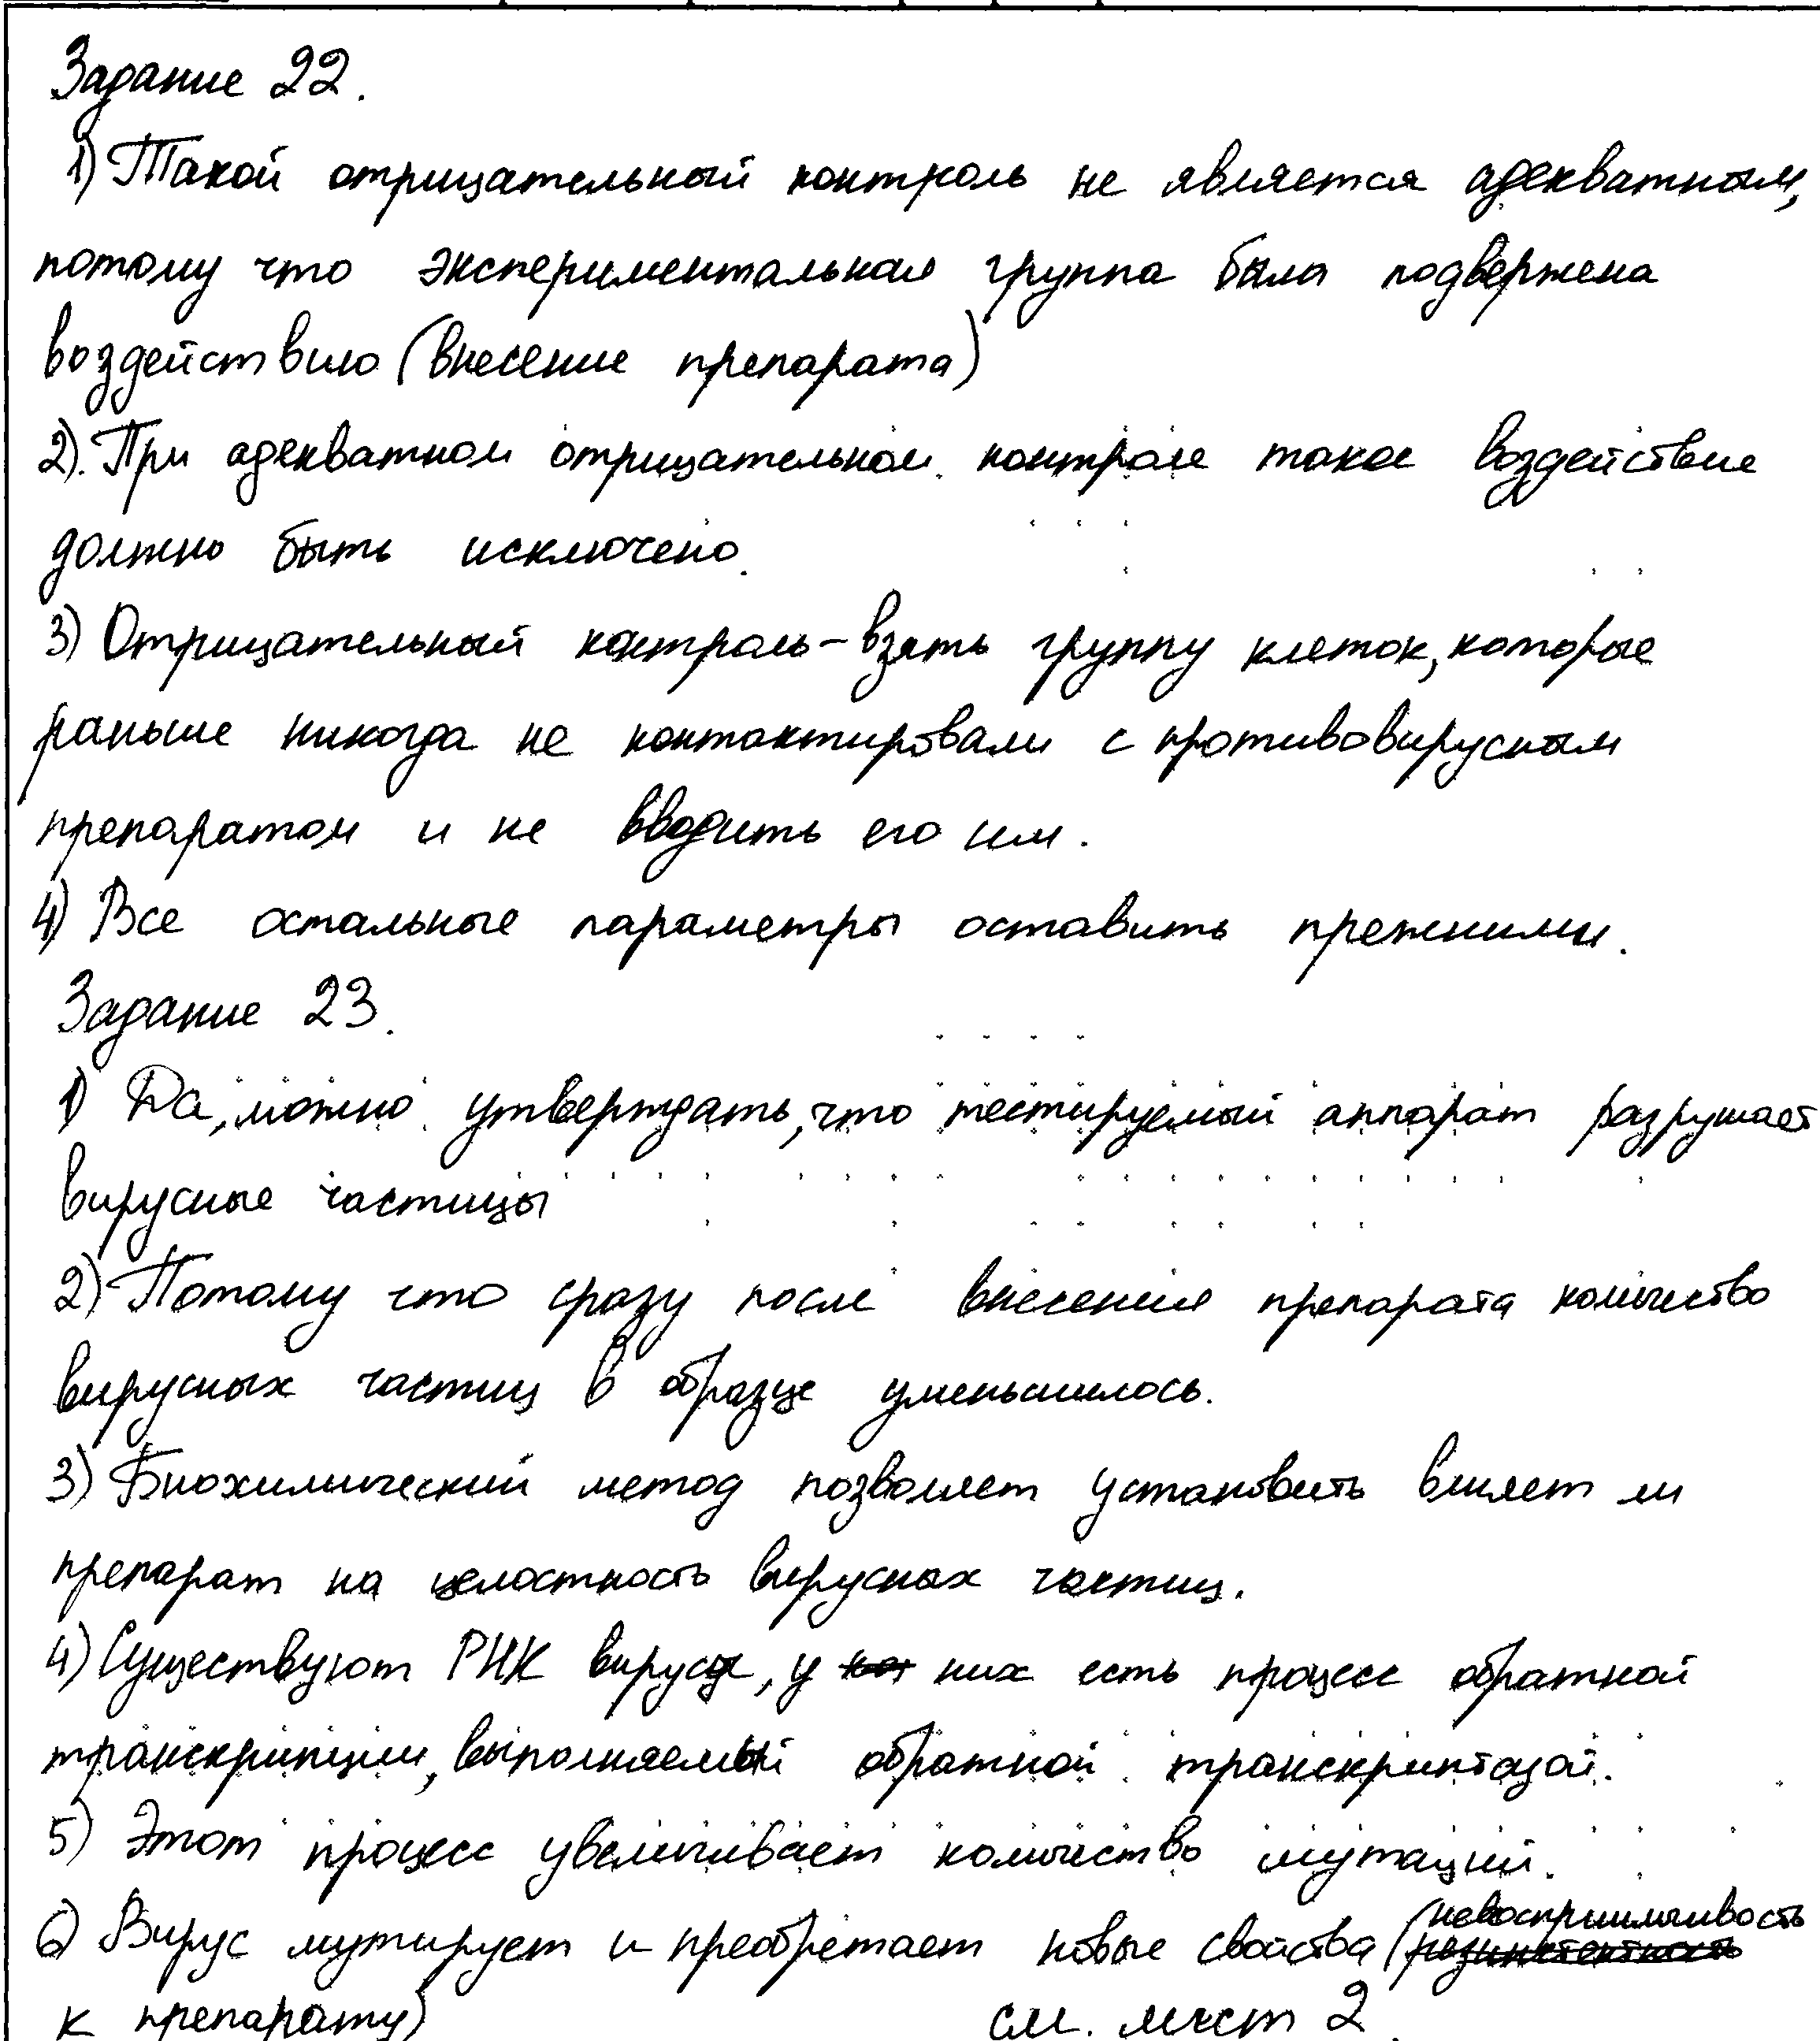 Задание 22.
1) Такой отрицательный контроль не является адекватным,
потому что экспериментальная группа была подвержена
воздействию (внесение препарата)
2). При адекватном отрицательном контроле такое воздействие
должно быть исключено.
3) Отрицательный контроль – взять группу клеток, которые
раньше никогда не контактировали с противовирусным
препаратом и не вводить его им.
4) Все остальные параметры оставить прежними.
Задание 23.
1) Да, можно утверждать, что тестируемый аппарат разрушает
вирусные частицы
2) Потому что сразу после внесения препарата количество
вирусных частиц в образце уменьшилось.
3) Биохимический метод позволяет установить влияет ли
препарат на целостность вирусных частиц.
4) Существуют РНК вирусы, у них есть процесс обратной
транскрипции, выполняемый обратной транскриптазой.
5) Этот процесс увеличивает количество мутаций.
6) Вирус мутирует и преобретает новые свойства (невосприимчивость
к препарату) см. лист 2.